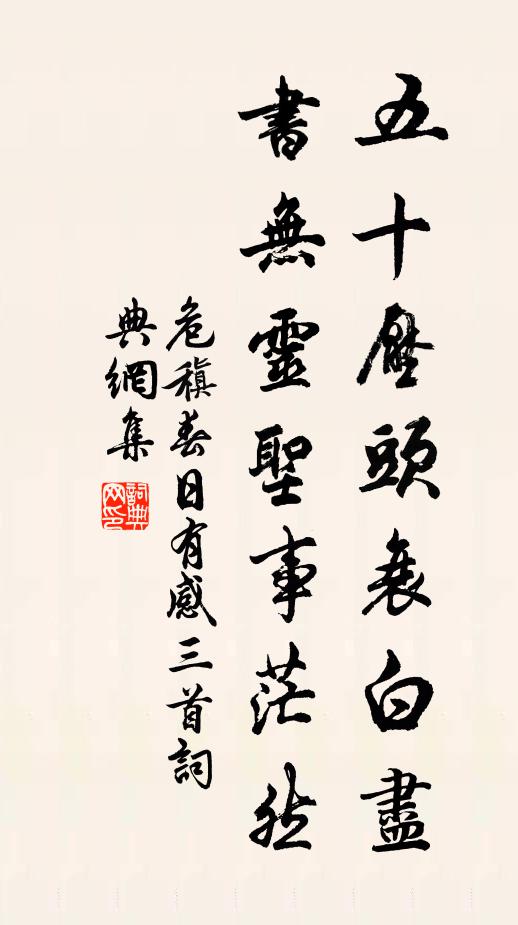 五十壓頭衰白盡
書無靈聖事茫然
危稹春日有感三首詞
典網集
詞典
网印